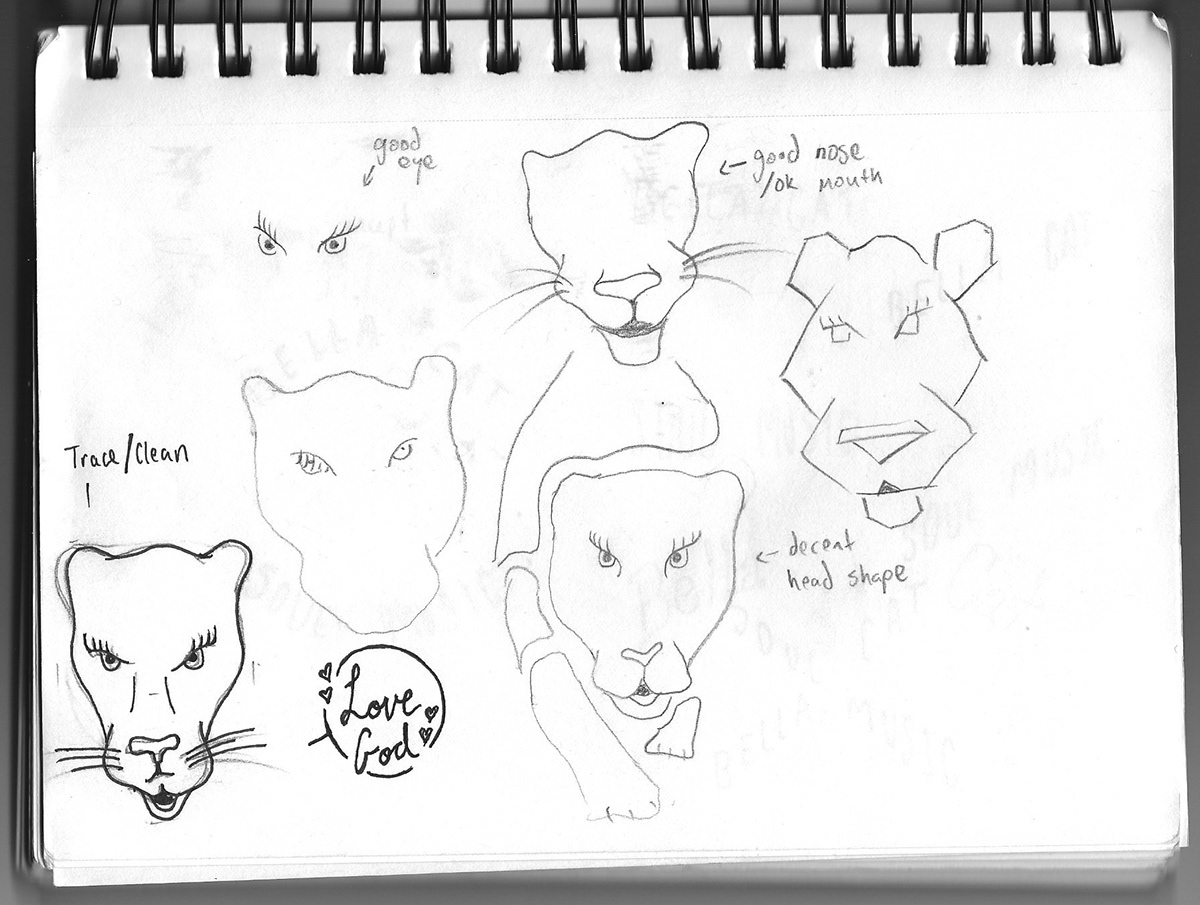 good
eye
good nose
/ok mouth
Trace/Clean
1
decent
head shape
Love
God